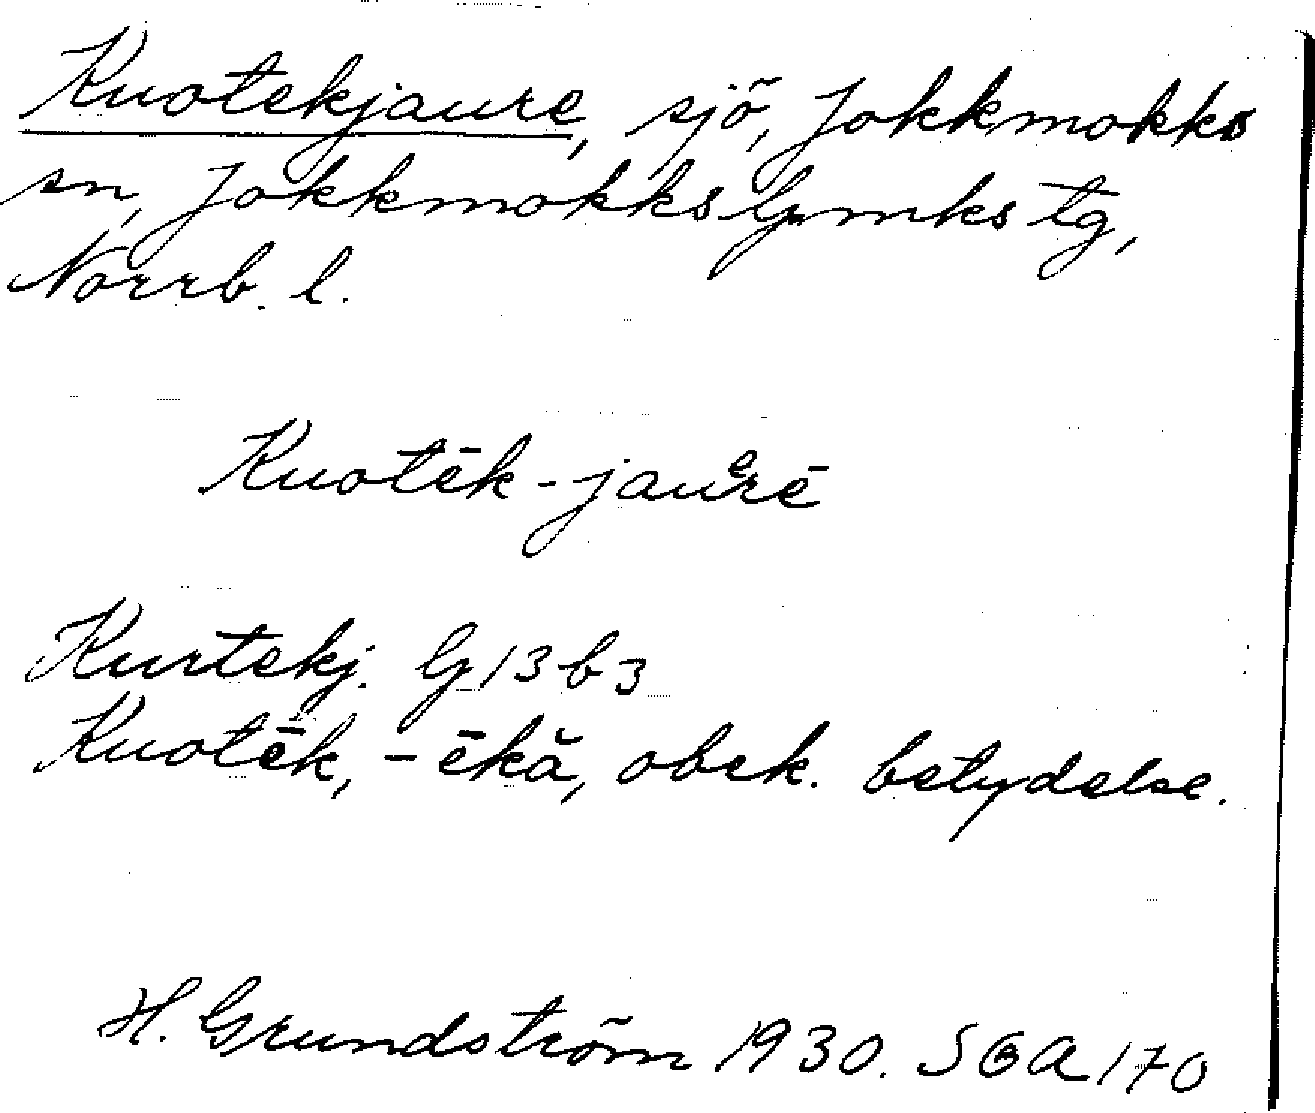 Kuotekjaure, sjö, Jokkmokks
sn, Jokkmokks Gmks tg,
Norrb. l.
Kuotēk-jauᵉrē
Kurtekj. G 13 b 3
Kuotēk, -ēkă, obek. betydelse.
H. Grundström 1930. SGA 170